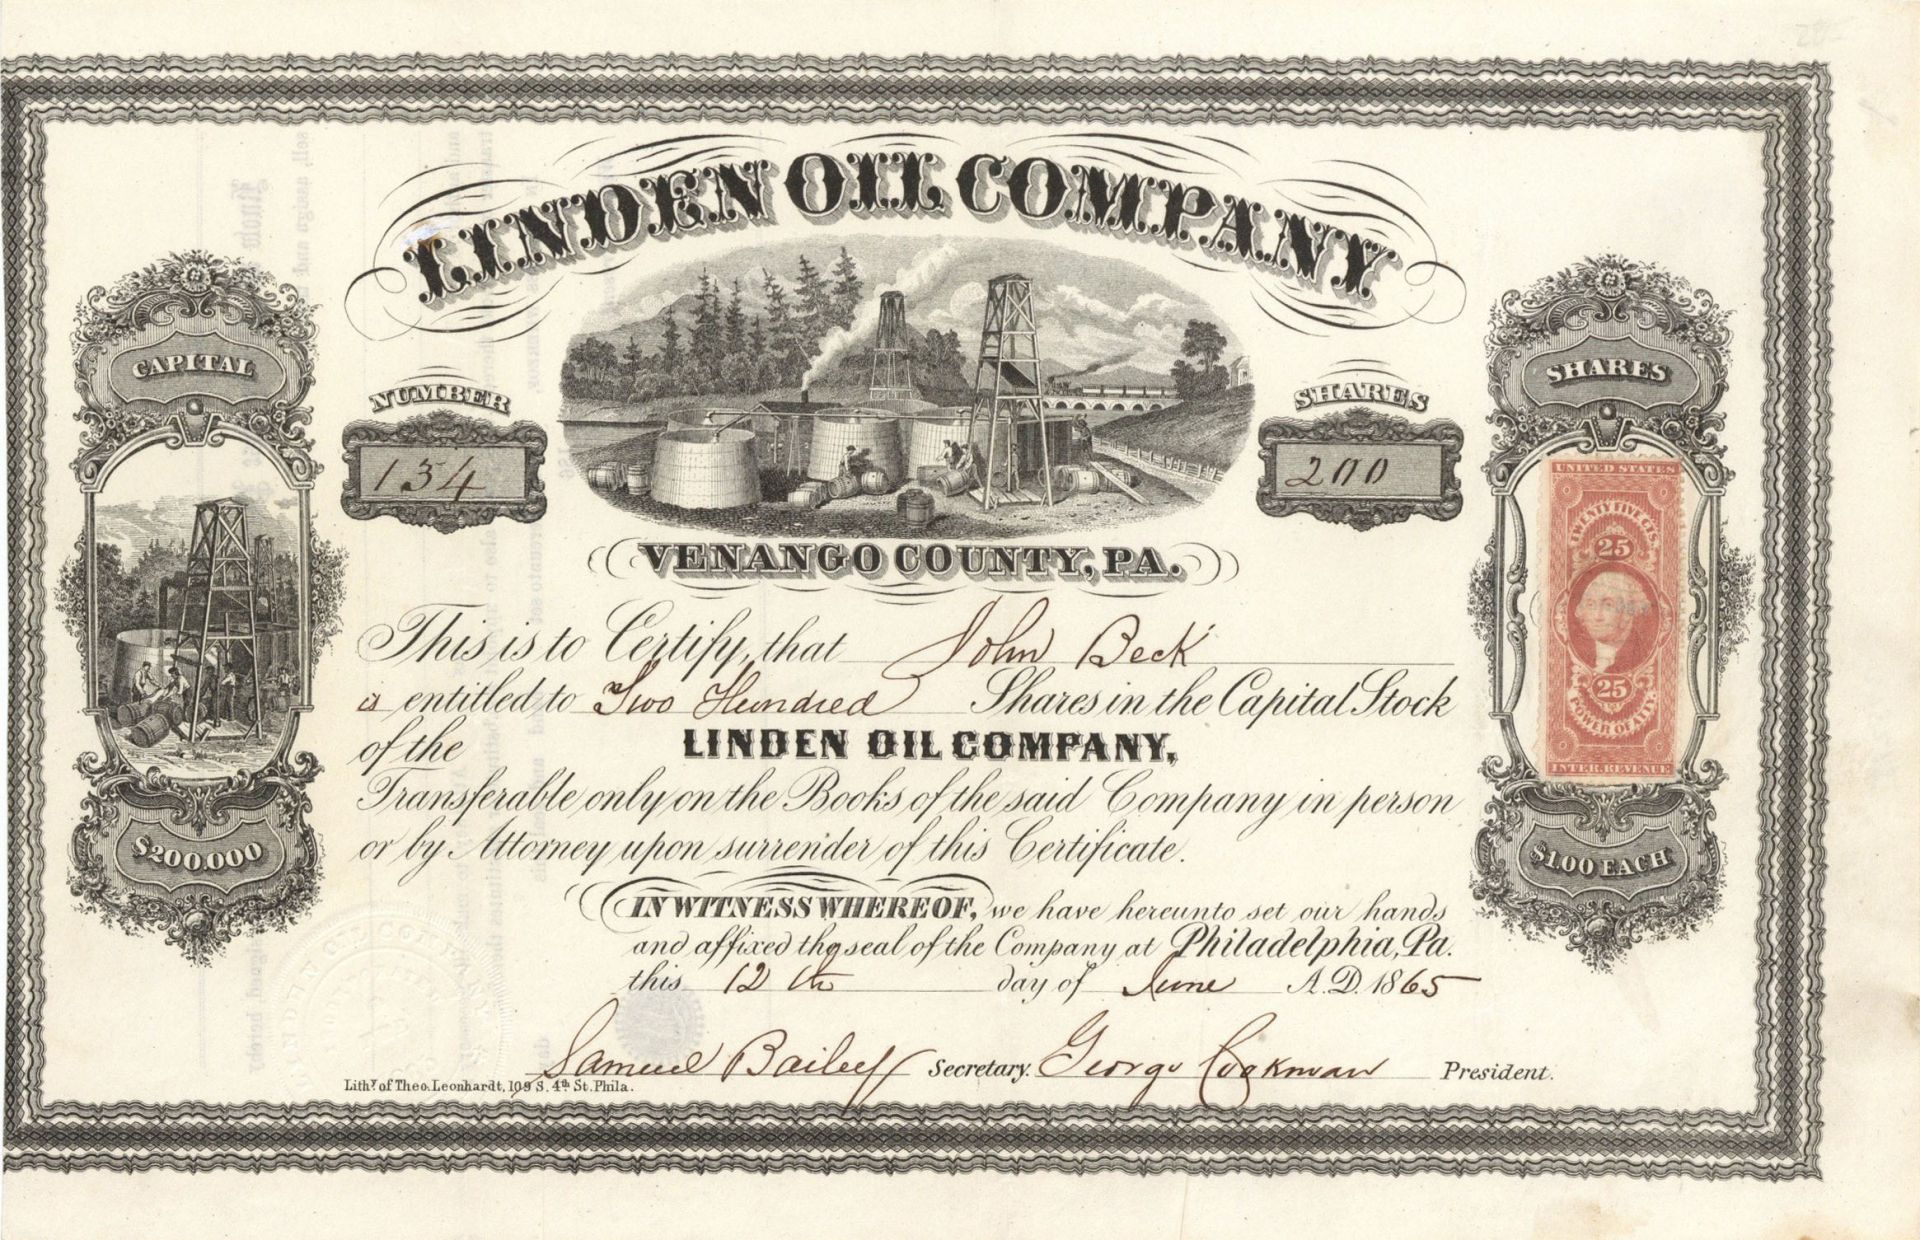 LINDEN OIL COMPANY
CAPITAL
$200.000
NUMBER
134
SHARES
200
SHARES
$1.00 EACH
UNITED STATES
TWENTY FIVE CTS.
25
25
POWER OF ATTY.
INTER. REVENUE
VENANGO COUNTY, PA.
This is to Certify, that John Beck
is entitled to Two Hundred Shares in the Capital Stock
of the LINDEN OIL COMPANY,
Transferable only on the Books of the said Company in person
or by Attorney upon surrender of this Certificate.
IN WITNESS WHEREOF, we have hereunto set our hands
and affixed the seal of the Company at Philadelphia, Pa.
this 12th day of June A.D. 1865
Samuel Bailey Secretary. George Cookman President.
Lithy. of Theo. Leonhardt, 109 S. 4th St. Phila.
LINDEN OIL COMPANY